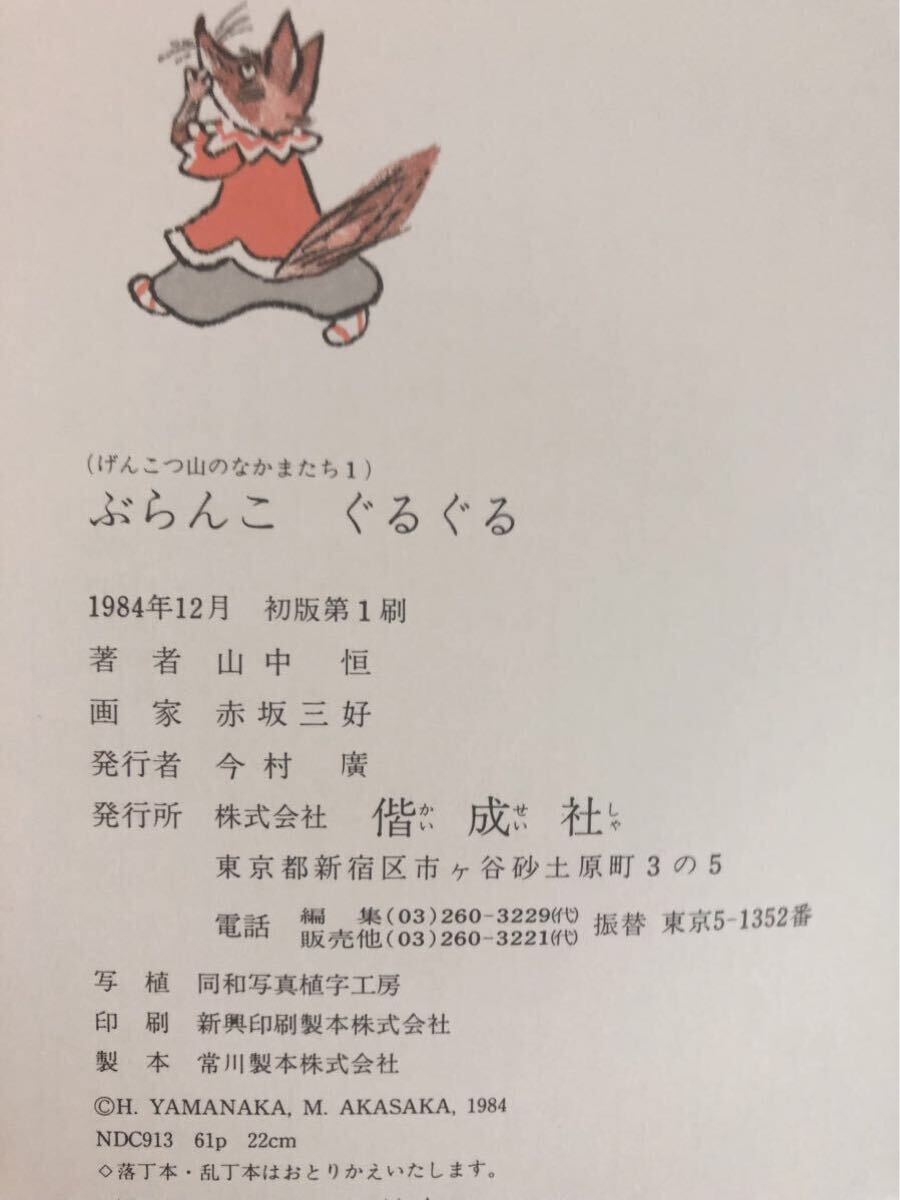 (げんこつ山のなかまたち1)
ぶらんこ ぐるぐる
1984年12月 初版第1刷
著者 山中 恒
画家 赤坂三好
発行者 今村 廣
発行所 株式会社 偕成社
かい せい しゃ
東京都新宿区市ヶ谷砂土原町3の5
電話 編集(03)260-3229(代) 振替 東京5-1352番
販売他(03)260-3221(代)
写植 同和写真植字工房
印刷 新興印刷製本株式会社
製本 常川製本株式会社
©H. YAMANAKA, M. AKASAKA, 1984
NDC913 61p 22cm
◇落丁本・乱丁本はおとりかえいたします。